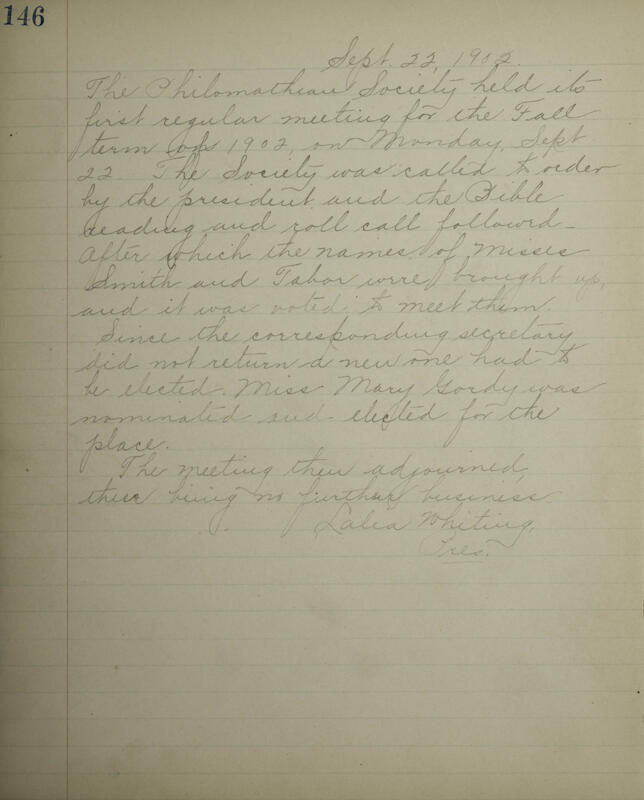 146
Sept. 22, 1902.
The Philomathean Society held its
first regular meeting for the Fall
term of 1902, on Monday, Sept
22. The Society was called to order
by the president and the Bible
reading and roll call followed -
After which the names of Misses
Smith and Tabor were brought up,
and it was voted to meet them.
Since the corresponding secretary
did not return a new one had to
be elected. Miss Mary Gordy was
nominated and elected for the
place.
The meeting then adjourned,
there being no further business
Whiting,
Pres.